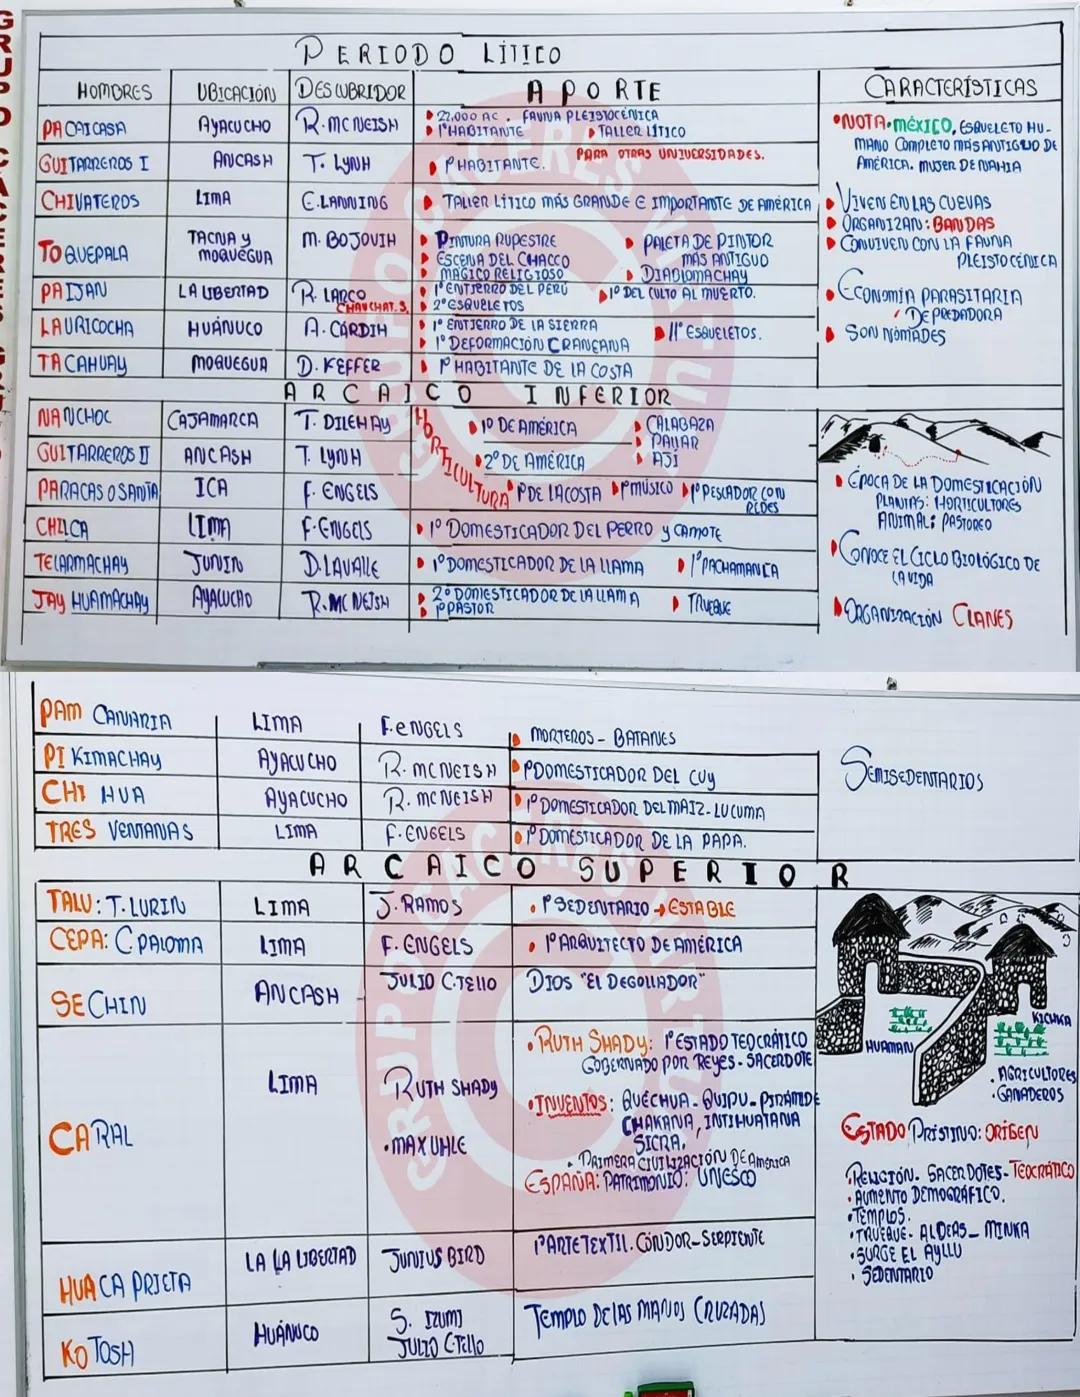 PERIODO LÍTICO
HOMBRES UBICACIÓN DESCUBRIDOR APORTE CARACTERÍSTICAS
PACAICASA AYACUCHO R. MC NEISH
22.000 AC. FAUNA PLEISTOCÉNICA
1º HABITANTE TALLER LÍTICO
GUITARREROS I ANCASH T. LYNH 1º HABITANTE. PARA OTRAS UNIVERSIDADES.
CHIVATEROS LIMA E. LANNING TALLER LÍTICO MÁS GRANDE E IMPORTANTE DE AMÉRICA
TOQUEPALA TACNA Y MOQUEGUA M. BOJOVIH
PINTURA RUPESTRE
ESCENA DEL CHACCO
MAGICO RELIGIOSO
PALETA DE PINTOR
MÁS ANTIGUO
DIABLOMACHAY
PAIJAN LA LIBERTAD R. LARCO
CHAUCHAT. S.
1º ENTIERRO DEL PERÚ 1º DEL CULTO AL MUERTO.
2º ESQUELETOS
LAURICOCHA HUÁNUCO A. CARDIH
1º ENTIERRO DE LA SIERRA
1º DEFORMACIÓN CRANEANA
11º ESQUELETOS.
TACAHUAY MOQUEGUA D. KEFFER 1º HABITANTE DE LA COSTA
NOTA. MÉXICO, ESQUELETO HU-
MANO COMPLETO MÁS ANTIGUO DE
AMÉRICA. MUJER DE NAHIA
VIVEN EN LAS CUEVAS
ORGANIZAN: BANDAS
CONVIVEN CON LA FAUNA
PLEISTOCÉNICA
ECONOMÍA PARASITARIA
DEPREDADORA
SON NÓMADES
ARCAICO INFERIOR
HORTICULTURA
NANCHOC CAJAMARCA T. DILEHAY 1º DE AMÉRICA
GUITARREROS II ANCASH T. LYNH 2º DE AMÉRICA
CALABAZA
PALLAR
AJÍ
PARACAS O SANTA ICA F. ENGELS 1º DE LA COSTA 1º MÚSICO 1º PESCADOR CON
REDES
CHILCA LIMA F. ENGELS 1º DOMESTICADOR DEL PERRO y CAMOTE
TELARMACHAY JUNIN D. LAVALLE 1º DOMESTICADOR DE LA LLAMA 1º PACHAMANCA
JAY HUAMACHAY AYACUCHO R. MC NEISH
2º DOMESTICADOR DE LA LLAMA TRUEQUE
1º PASTOR
ÉPOCA DE LA DOMESTICACIÓN
PLANTAS: HORTICULTORES
ANIMAL: PASTOREO
CONOCE EL CICLO BIOLÓGICO DE
LA VIDA
ORGANIZACIÓN CLANES
PAM CANARIA LIMA F. ENGELS MORTEROS - BATANES
PI KIMACHAY AYACUCHO R. MC NEISH 1º DOMESTICADOR DEL CUY
CHI HUA AYACUCHO R. MC NEISH 1º DOMESTICADOR DEL MAIZ - LUCUMA
TRES VENTANAS LIMA F. ENGELS 1º DOMESTICADOR DE LA PAPA.
SEMISEDENTARIOS
ARCAICO SUPERIOR
TALU: T. LURIN LIMA J. RAMOS 1º SEDENTARIO → ESTABLE
CEPA: C. PALOMA LIMA F. ENGELS 1º ARQUITECTO DE AMÉRICA
SECHIN ANCASH JULIO C. TELLO DIOS "EL DEGOLLADOR"
CARAL LIMA RUTH SHADY
• MAX UHLE
• RUTH SHADY: 1º ESTADO TEOCRÁTICO
GOBERNADO POR REYES - SACERDOTE
• INVENTOS: QUECHUA - QUIPU - PIRÁMIDE
CHAKANA, INTIHUATANA
SICRA.
• PRIMERA CIVILIZACIÓN DE AMERICA
ESPAÑA: PATRIMONIO: UNESCO
HUACA PRIETA LA LA LIBERTAD JUNIUS BIRD 1º ARTE TEXTIL. CÓNDOR - SERPIENTE
KOTOSH HUÁNUCO S. IZUMI
JULIO C. TELLO
TEMPLO DE LAS MANOS CRUZADAS
HUAMAN
KICHKA
• AGRICULTORES
• GANADEROS
ESTADO PRÍSTINO: ORÍGEN
• RELIGIÓN. SACERDOTES - TEOCRÁTICO
• AUMENTO DEMOGRÁFICO.
• TEMPLOS.
• TRUEQUE - ALDEAS - MINKA
• SURGE EL AYLLU
• SEDENTARIO